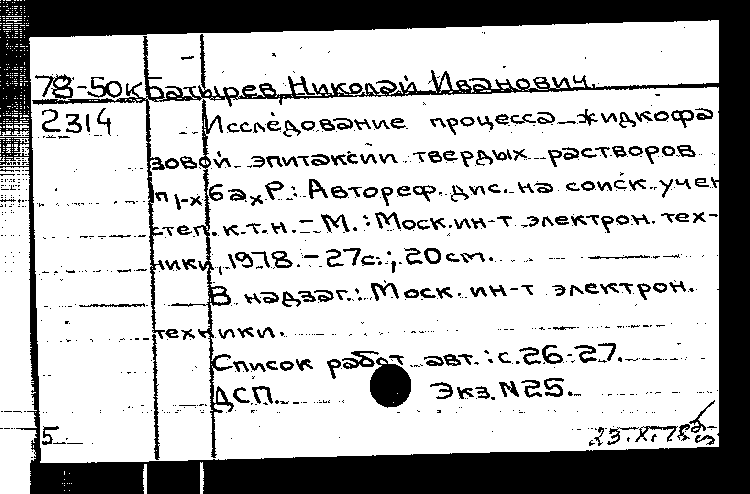 78-50к Батырев, Николай Иванович.
2314 Исследование процесса жидкофа
зовой эпитаксии твердых растворов
n 1-х бахР: Автореф. дис. на соиск. учен
степ. к.т.н. - М.: Моск. ин-т электрон. тех-
ники, 1978. - 27с.; 20см.
В надзаг.: Моск. ин-т электрон.
техники.
Список работ авт.: с.26-27.
ДСП. Экз. N25.
5 23.X.78